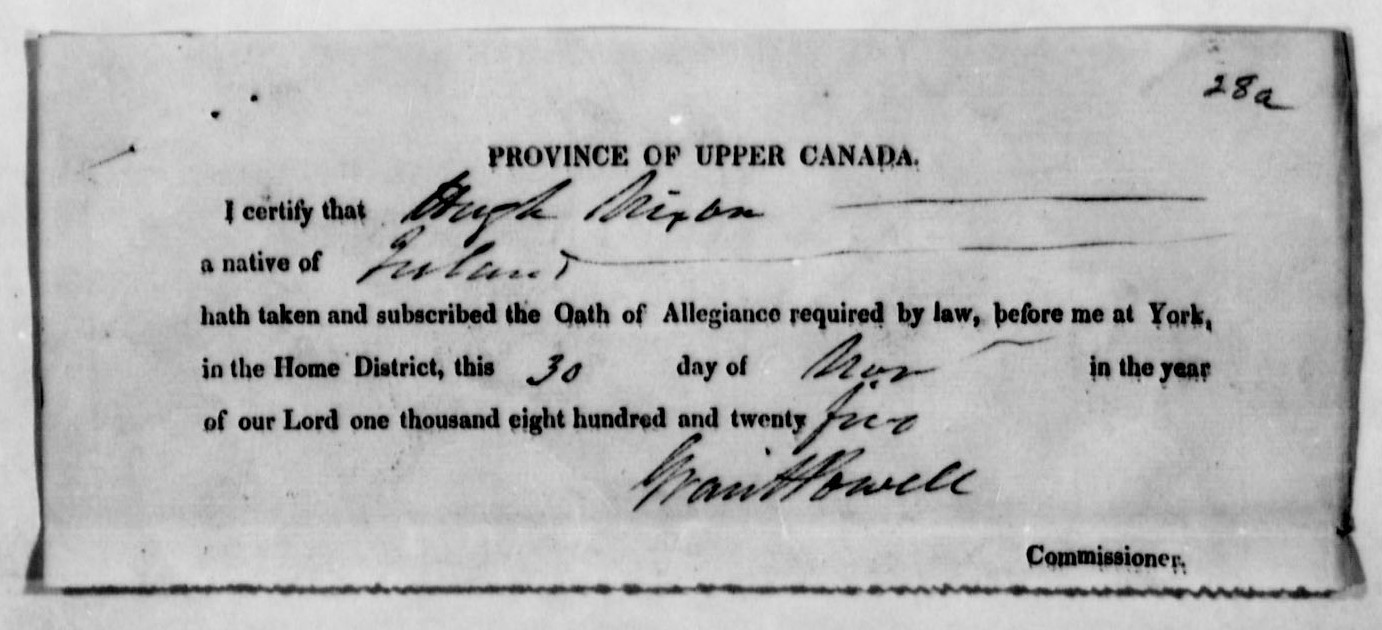 28a
PROVINCE OF UPPER CANADA.
I certify that Hugh Nixon
a native of Ireland
hath taken and subscribed the Oath of Allegiance required by law, before me at York,
in the Home District, this 30 day of Nov in the year
of our Lord one thousand eight hundred and twenty five
Grant Powell
Commissioner.